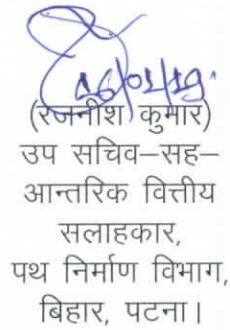 16/01/19.
(रजनीश कुमार)
उप सचिव–सह–
आन्तरिक वित्तीय
सलाहकार,
पथ निर्माण विभाग,
बिहार, पटना।